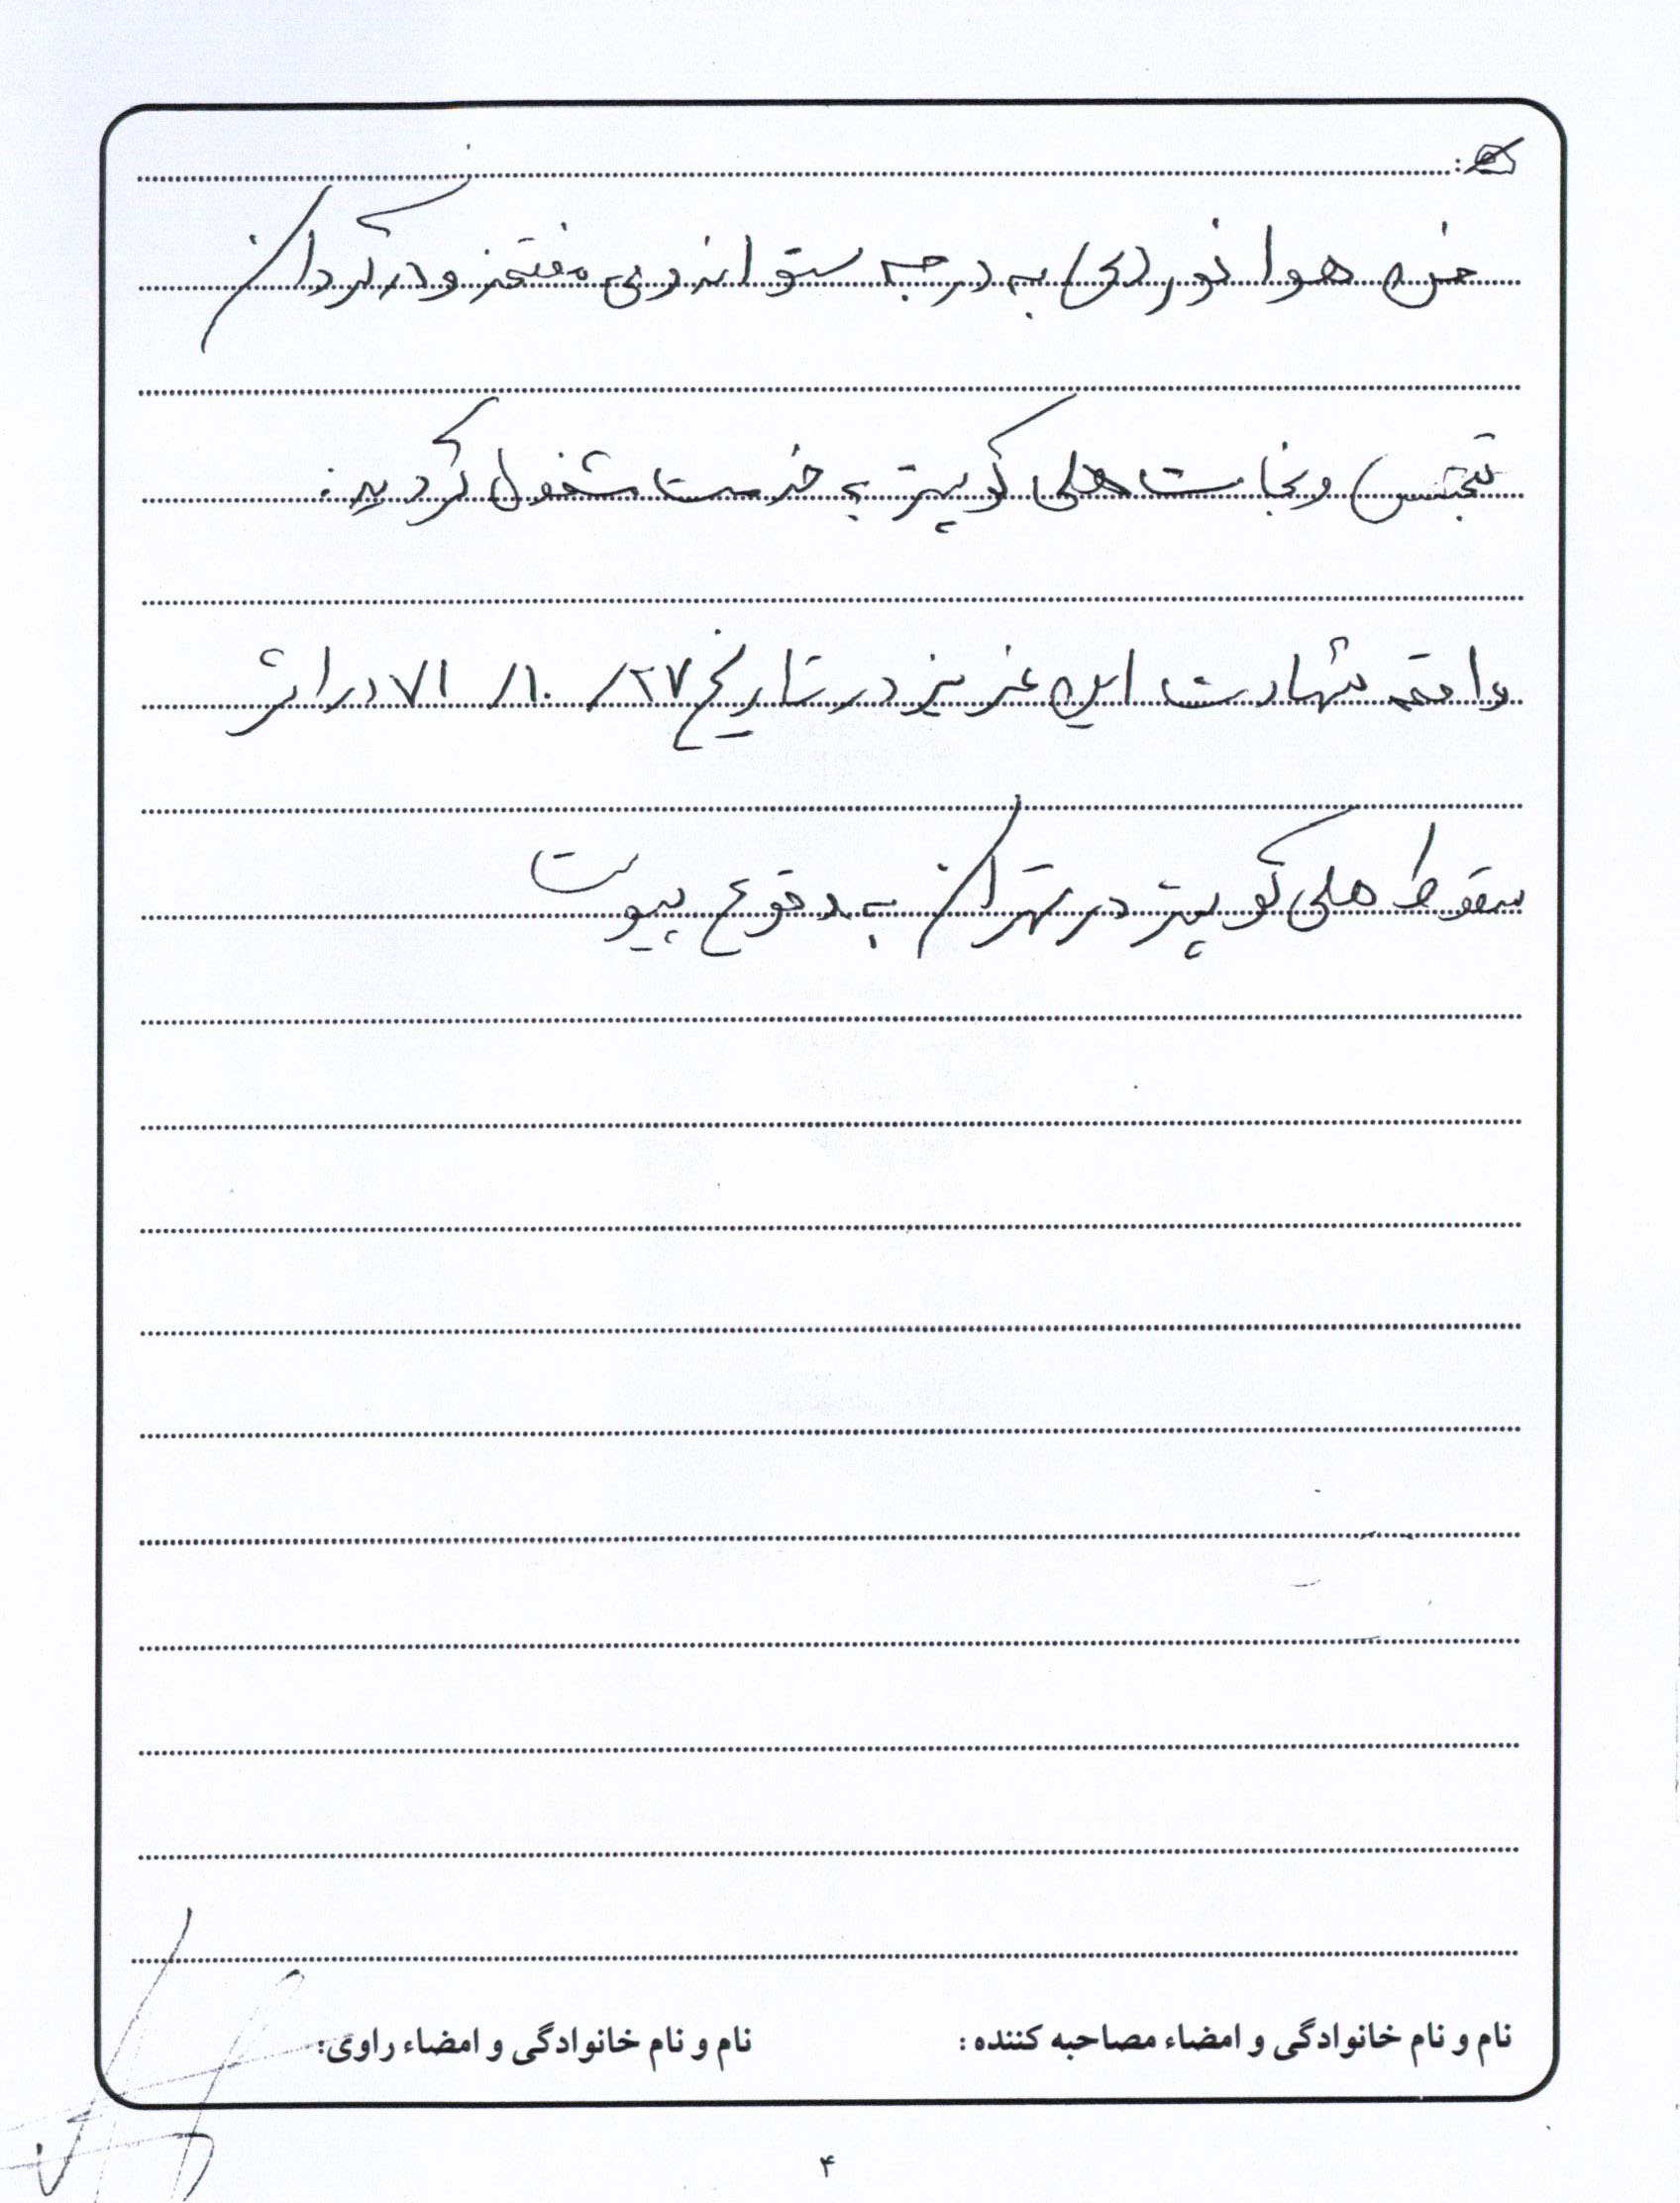 فن هوا نوردی) به درجه ستواندومی مفتخر و در گردان
تجسس و نجات هلی کوپتر به خدمت مشغول گردید.
واقعه شهادت این عزیز در تاریخ ۲۷/ ۱۰/ ۷۱ در اثر
سقوط هلی کوپتر در تهران به وقوع پیوست
نام و نام خانوادگی و امضاء مصاحبه کننده :
نام و نام خانوادگی و امضاء راوی:
۴